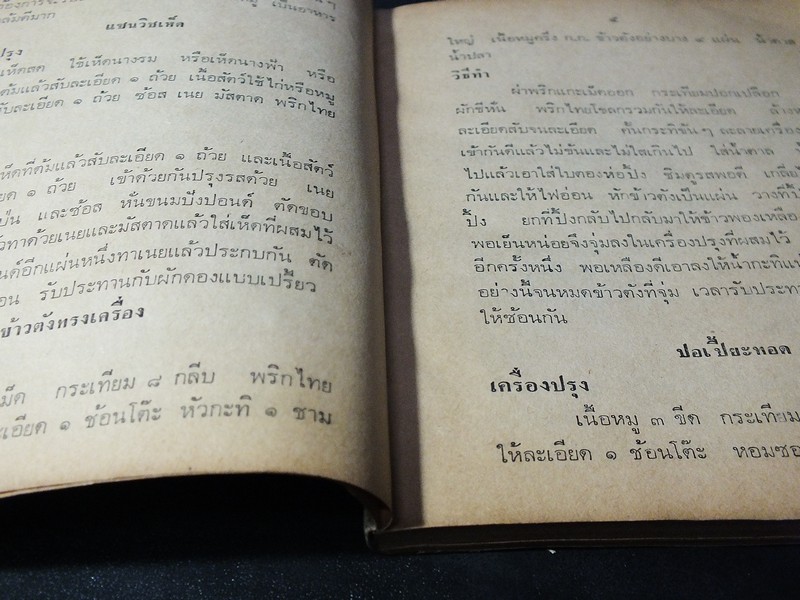 แซนวิชเห็ด
ปรุง
เห็ดสด ใช้เห็ดนางรม หรือเห็ดนางฟ้า หรือ
ต้มแล้วสับละเอียด ๑ ถ้วย เนื้อสัตว์ใช้ไก่หรือหมู
สับละเอียด ๑ ถ้วย ซ้อส เนย มัสตาด พริกไทย
เห็ดที่ต้มแล้วสับละเอียด ๑ ถ้วย และเนื้อสัตว์
๑ ถ้วย เข้าด้วยกันปรุงรสด้วย เนย
ป่น และซ้อส หั่นขนมปังปอนด์ ตัดขอบ
ทาด้วยเนยและมัสตาดแล้วใส่เห็ดที่ผสมไว้
อีกแผ่นหนึ่งทาเนยแล้วประกบกัน ตัด
รับประทานกับผักดองแบบเปรี้ยว
ข้าวตังทรงเครื่อง
เม็ด กระเทียม ๘ กลีบ พริกไทย
ละเอียด ๑ ช้อนโต๊ะ หัวกะทิ ๑ ชาม
ใหญ่ เนื้อหมูครึ่ง ก.ก. ข้าวตังอย่างบาง ๔ แผ่น
น้ำปลา
วิธีทำ
ผ่าพริกแกะเม็ดออก กระเทียมปอกเปลือก
ผักชีหั่น พริกไทยโขลกรวมกันให้ละเอียด ล้าง
ละเอียดสับจนละเอียด คั้นกระทิข้นๆ ละลายเครื่อง
เข้ากันดีแล้วไม่ข้นและไม่ใสเกินไป ใส่น้ำตาล
ไปแล้วเอาใส่ใบตองห่อปิ้ง ชิมดูรสพอดี
กันและให้ไฟอ่อน หักข้าวตังเป็นแผ่น วางที่
ปิ้ง ยกที่ปิ้งกลับไปกลับมาให้ข้าวพองเหลือง
พอเย็นหน่อยจึงจุ่มลงในเครื่องปรุงที่ผสมไว้
อีกครั้งหนึ่ง พอเหลืองดีเอาลงให้น้ำกะทิ
อย่างนี้จนหมดข้าวตังที่จุ่ม เวลารับประทา
ให้ซ้อนกัน
ปอเปี๊ยะทอด
เครื่องปรุง
เนื้อหมู ๓ ขีด กระเทียม
ให้ละเอียด ๑ ช้อนโต๊ะ หอมซอ